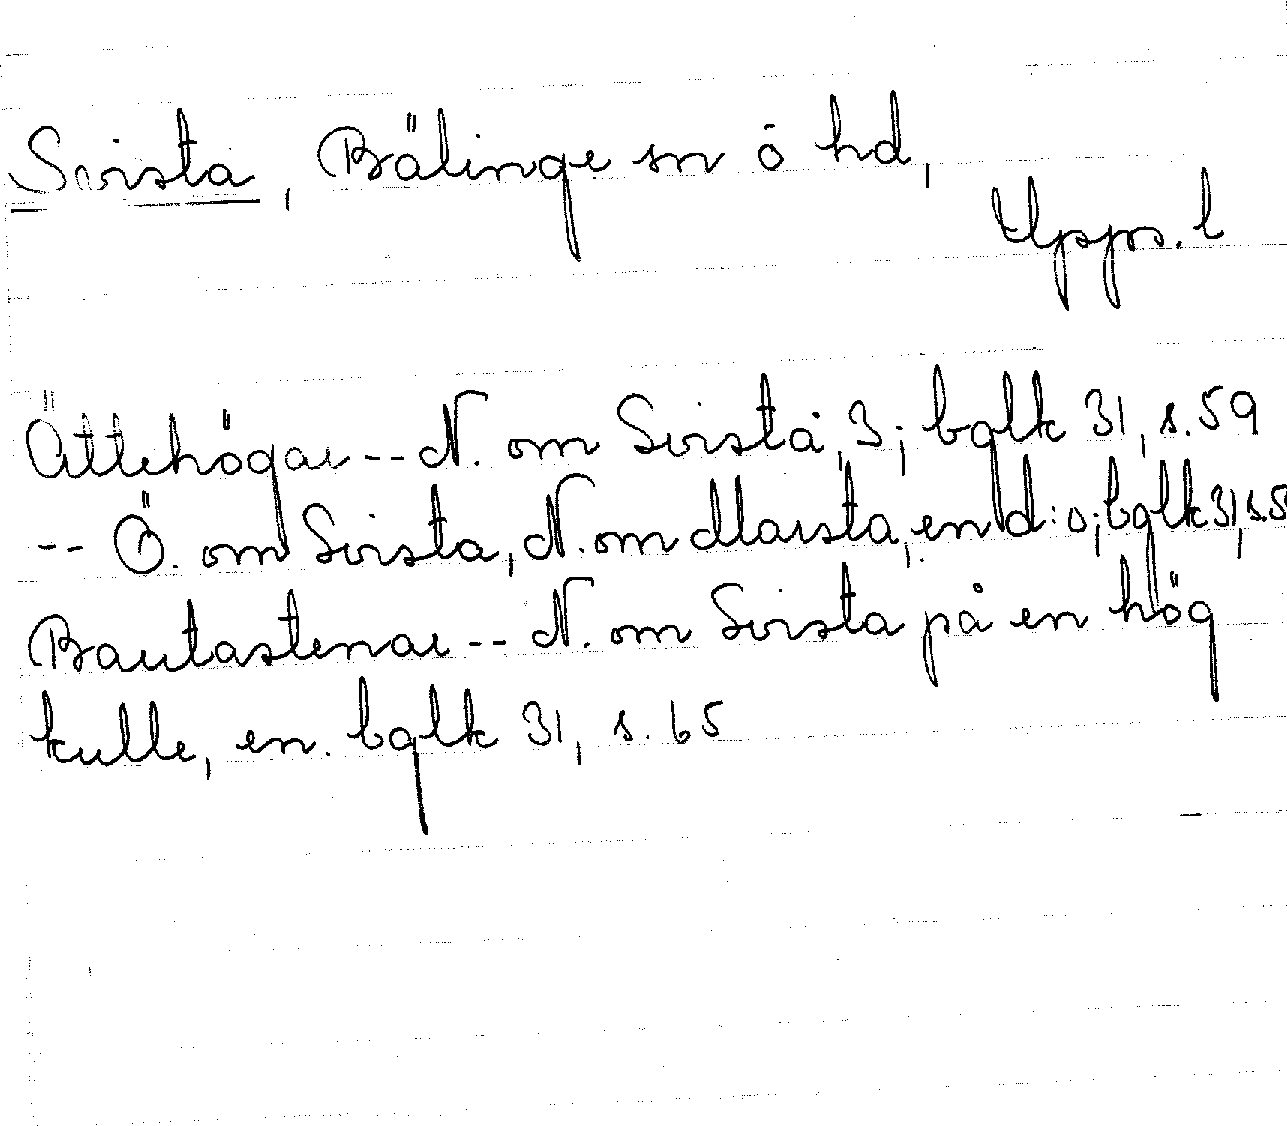 Sorsta, Bälinge sn o hd,
Upps. l
Ättehögar -- N. om Sorsta, 3; bglk 31, s. 59
-- Ö. om Sorsta, N. om Marsta, en d:o; bglk 31, s. 5
Bautastenar -- N. om Sorsta på en hög
kulle, en. bglk 31, s. 65